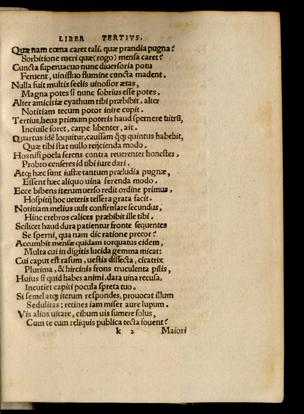 LIBER TERTIVS.
Quæ nam cœna caret tali, quæ prandia pugna?
Sorbitione meri quæ (rogo) mensa caret?
Cuncta superuacuo nunc diuersoria potu
Feruent, uinisluo flumine cuncta madent.
Nulla fuit multis seclis uinosior ætas,
Magna potes si nunc sobrius esse potes.
Alter amicitiæ cyathum tibi præbibit, alter
Notitiam tecum potor inire cupit.
Tertius, heus primum poteris haud spernere
Inciuile foret, carpe libenter, ait.
Quartus idē loquitur, caussam quintus habebit,
Quæ tibi stat nullo reijcienda modo.
Hos nisi pocla ferens contra reuerenter honestes,
Probro censeres id tibi iure dari.
Atq; hæc sunt iustæ tantum præludia pugnæ,
Essent hæc aliquo uina ferenda modo.
Ecce bibens iterum uerso redit ordine primus,
Hospitij hoc ueteris tessera grata facit.
Notitiam melius uult confirmare secundus,
Hinc crebros calices præbibit ille tibi.
Scilicet haud dura patientur fronte sequentes
Se sperni, qua nam dic ratione precor?
Accumbit mensæ quidam torquatus eidem,
Multa cui in digitis lucida gemma micat:
Cui caput est rasum, uestis dissecta, cicatrix
Plurima, & hircinis frons truculenta pilis,
Huius si quid habes animi, data uina recusa,
Incutiet capiti pocula spreta tuo.
Si semel atq; iterum respondes, prouocat illum
Sedulitas: retines iam miser aure lupum.
Vis alios uitare, cibum uis sumere solus,
Cum te cum reliquis publica tecta fouent?
k 2 Maiori